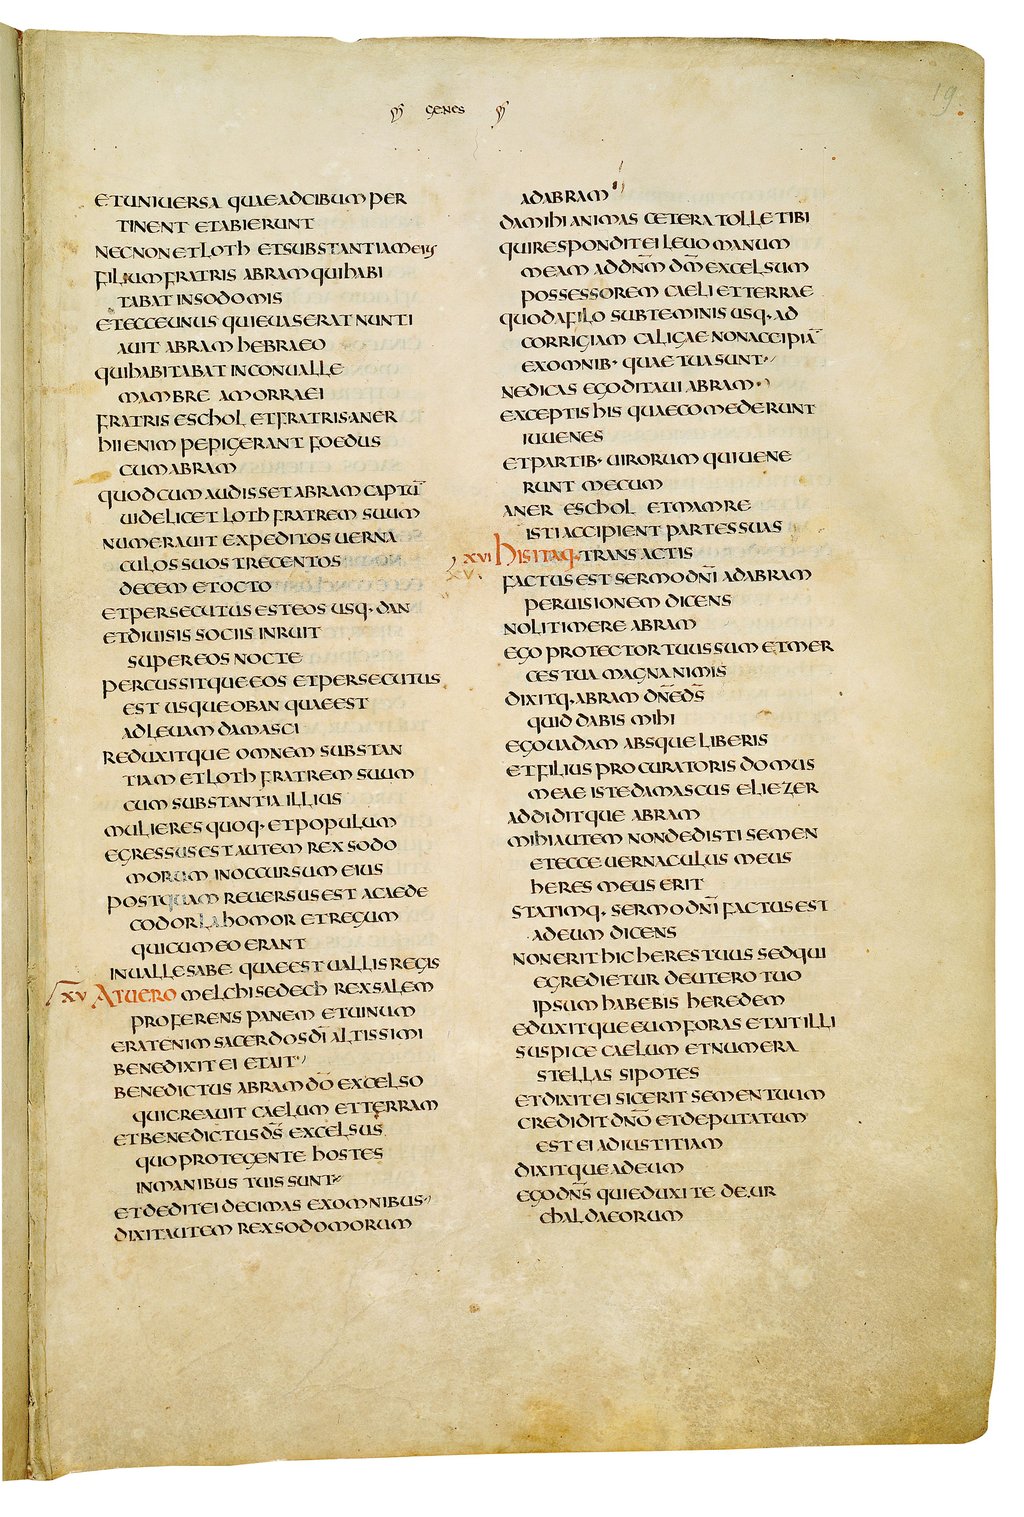 GENES
19
ETUNIUERSA QUAEADCIBUM PER
TINENT ETABIERUNT
NECNON ET LOTH ETSUBSTANTIAM EIUS
FILIUM FRATRIS ABRAM QUIHABI
TABAT INSODOMIS
ETECCEUNUS QUIEUASERAT NUNTI
AUIT ABRAM HEBRAEO
QUIHABITABAT INCONUALLE
MAMBRE AMORRAEI
FRATRIS ESCHOL ETFRATRISANER
HIIENIM PEPIGERANT FOEDUS
CUMABRAM
QUODCUMAUDISSETABRAM CAPTŪ
UIDELICET LOTH FRATREM SUUM
NUMERAUIT EXPEDITOS UERNA
CULOS SUOS TRECENTOS
DECEM ETOCTO
ETPERSECUTUS ESTEOS USQ· DAN
ETDIUISIS SOCIIS INRUIT
SUPEREOS NOCTE
PERCUSSITQUEEOS ETPERSECUTUS
EST USQUEOBAN QUAEEST
ADLEUAM DAMASCI
REDUXITQUE OMNEM SUBSTAN
TIAM ETLOTH FRATREM SUUM
CUM SUBSTANTIA ILLIUS
MULIERES QUOQ· ETPOPULUM
EGRESSUSEST AUTEM REX SODO
MORUM INOCCURSUM EIUS
POSTQUAM REUERSUSEST ACAEDE
CODORLAHOMOR ETREGUM
QUICUMEO ERANT
INUALLESABE QUAEEST UALLIS REGIS
XV ATUERO MELCHISEDECH REXSALEM
PROFERENS PANEM ETUINUM
ERATENIM SACERDOSDI̅ ALTISSIMI
BENEDIXIT EI ETAIT
BENEDICTUS ABRAM DO̅ EXCELSO
QUICREAUIT CAELUM ETTERRAM
ETBENEDICTUSDS̅ EXCELSUS
QUOPROTEGENTE HOSTES
INMANIBUS TUIS SUNT
ETDEDITEI DECIMAS EXOMNIBUS
DIXITAUTEM REXSODOMORUM
ADABRAM
DAMIHI ANIMAS CETERA TOLLETIBI
QUIRESPONDITEI LEUO MANUM
MEAM ADDNM̅ DM̅ EXCELSUM
POSSESSOREM CAELI ETTERRAE
QUODAFILO SUBTEMINIS USQ· AD
CORRIGIAM CALIGAE NONACCIPIĀ
EXOMNIB· QUAE TUASUNT
NEDICAS EGODITAUI ABRAM
EXCEPTIS HIS QUAECOMEDERUNT
IUUENES
ETPARTIB· UIRORUM QUIUENE
RUNT MECUM
ANER ESCHOL ETMAMRE
ISTIACCIPIENT PARTESSUAS
XVI HISITAQ· TRANSACTIS
XV
FACTUSEST SERMODNI̅ ADABRAM
PERUISIONEM DICENS
NOLITIMERE ABRAM
EGO PROTECTORTUUSSUM ETMER
CESTUA MAGNANIMIS
DIXITQ· ABRAM DNE̅DS̅
QUID DABIS MIHI
EGOUADAM ABSQUE LIBERIS
ETFILIUS PROCURATORIS DOMUS
MEAE ISTEDAMASCUS ELIEZER
ADDIDITQUE ABRAM
MIHIAUTEM NONDEDISTI SEMEN
ETECCE UERNACULUS MEUS
HERES MEUS ERIT
STATIMQ· SERMODNI̅ FACTUSEST
ADEUM DICENS
NONERIT HIC HERES TUUS SEDQUI
EGREDIETUR DEUTERO TUO
IPSUM HABEBIS HEREDEM
EDUXITQUEEUM FORAS ETAIT ILLI
SUSPICE CAELUM ETNUMERA
STELLAS SIPOTES
ETDIXIT EI SICERIT SEMENTUUM
CREDIDIT DNO̅ ETDEPUTATUM
EST EI ADIUSTITIAM
DIXITQUEADEUM
EGODNS̅ QUIEDUXI TE DE UR
CHALDAEORUM